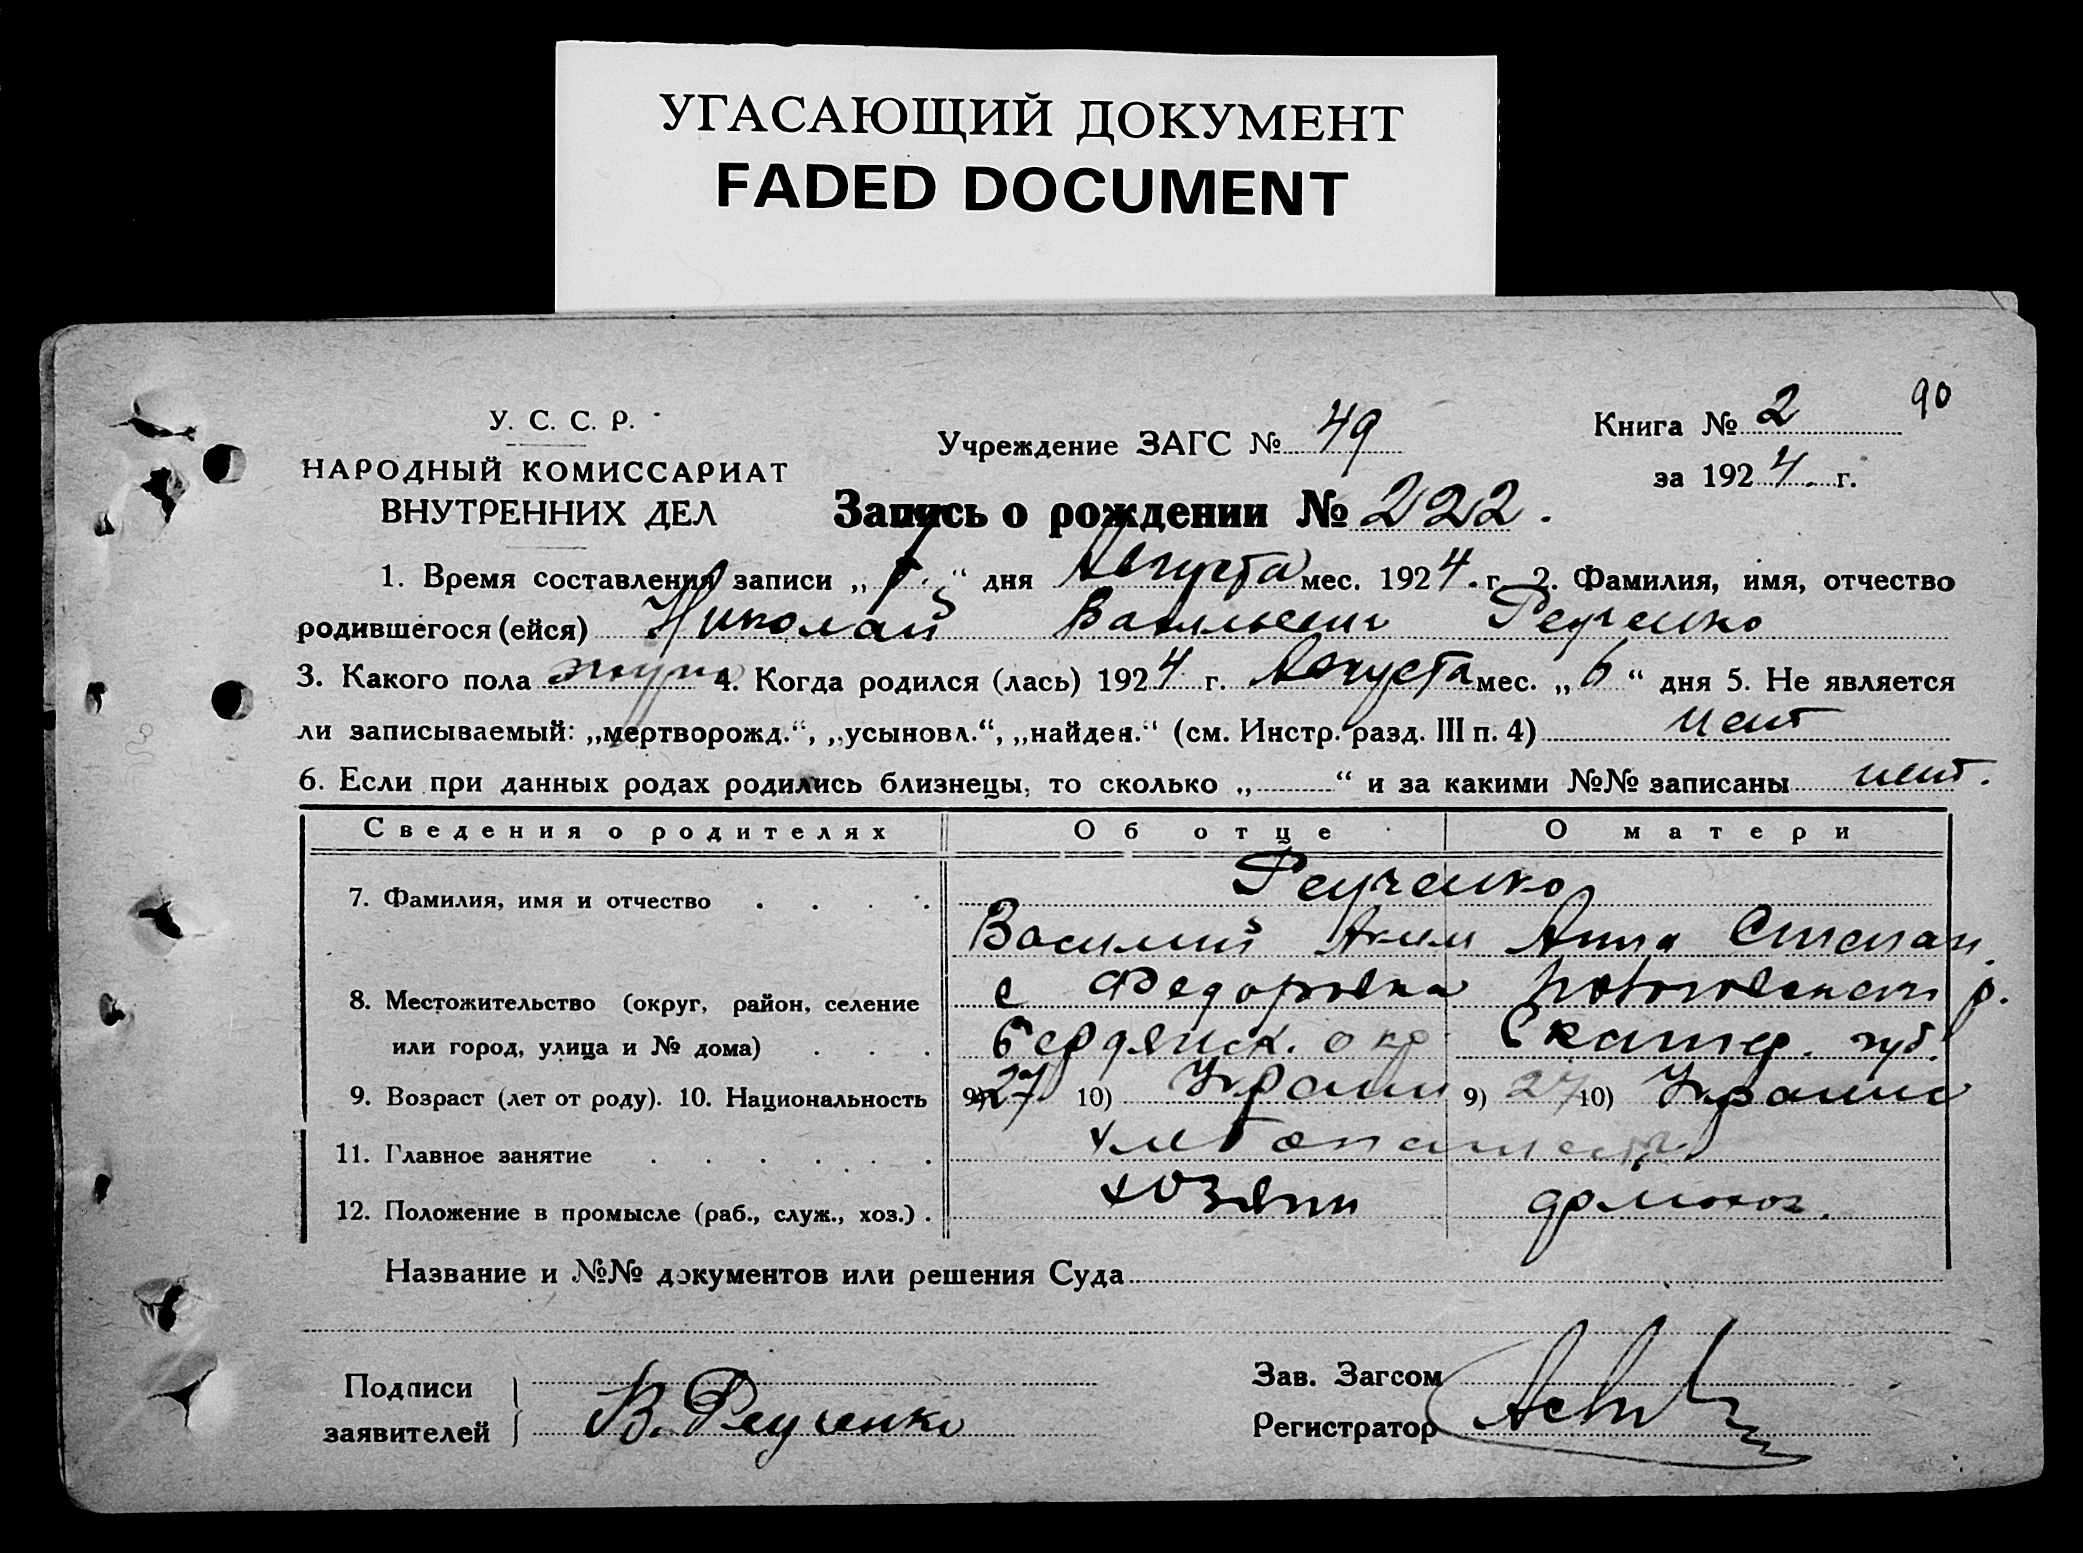 УГАСАЮЩИЙ ДОКУМЕНТ
FADED DOCUMENT
90
У. С. С. Р.
НАРОДНЫЙ КОМИССАРИАТ
ВНУТРЕННИХ ДЕЛ
Учреждение ЗАГС № 49
Книга № 2
за 1924 г.
Запись о рождении № 222.
1. Время составления записи „7.“ дня Августа мес. 1924. г. 2. Фамилия, имя, отчество
родившегося (ейся) Николай Васильевич Реученко
3. Какого пола муж 4. Когда родился (лась) 1924 г. Августа мес. „6“ дня 5. Не является
ли записываемый: „мертворожд.“, „усыновл.“, „найден.“ (см. Инстр. разд. III п. 4) нет
6. Если при данных родах родились близнецы, то сколько „ “ и за какими №№ записаны нет.
Сведения о родителях Об отце О матери
7. Фамилия, имя и отчество Реученко
Василий Аким Анна Степан.
8. Местожительство (округ, район, селение с Федоровка р.
или город, улица и № дома) Бердянск. окр. Екатер. губ.
9. Возраст (лет от роду). 10. Национальность 9) 27 10) Украин 9) 27 10) Украин
11. Главное занятие
12. Положение в промысле (раб., служ., хоз.) хозяин домохоз.
Название и №№ документов или решения Суда
Подписи
заявителей
В. Реученко
Зав. Загсом
Регистратор